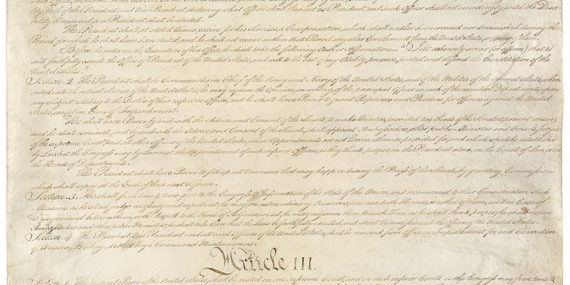 declaring what Officer shall then act as President, and such Officer shall act accordingly, until the
be removed, or a President shall be elected.
The President shall, at stated Times, receive for his Services, a Compensation, which shall neither be encreased nor diminished during the
Period for which he shall have been elected, and he shall not receive within that Period any other Emolument from the United States, or any of them.
Before he enter on the Execution of his Office, he shall take the following Oath or Affirmation: "I do solemnly swear (or affirm) that I
will faithfully execute the Office of President of the United States, and will to the best of my Ability, preserve, protect and defend the Constitution of the
United States."
Section. 2. The President shall be Commander in Chief of the Army and Navy of the United States, and of the Militia of the several States, when
called into the actual Service of the United States; he may require the Opinion, in writing, of the principal Officer in each of the executive Departments, upon
any Subject relating to the Duties of their respective Offices, and he shall have Power to grant Reprieves and Pardons for Offences against the United
States, except in Cases of Impeachment.
He shall have Power, by and with the Advice and Consent of the Senate, to make Treaties, provided two thirds of the Senators present concur;
and he shall nominate, and by and with the Advice and Consent of the Senate, shall appoint Ambassadors, other public Ministers and Consuls, Judges
of the supreme Court, and all other Officers of the United States, whose Appointments are not herein otherwise provided for, and which shall be established
by Law: but the Congress may by Law vest the Appointment of such inferior Officers, as they think proper, in the President alone, in the Courts of Law, or in
the Heads of Departments.
The President shall have Power to fill up all Vacancies that may happen during the Recess of the Senate, by granting Commissions
which shall expire at the End of their next Session.
Section. 3. He shall from time to time give to the Congress Information of the State of the Union, and recommend to their Consideration such
Measures as he shall judge necessary and expedient; he may, on extraordinary Occasions, convene both Houses, or either of them, and in Case of
Disagreement between them, with Respect to the Time of Adjournment, he may adjourn them to such Time as he shall think proper; he shall receive
Ambassadors and other public Ministers; he shall take Care that the Laws be faithfully executed, and shall Commission all the Officers of the United States.
Section. 4. The President, Vice President and all civil Officers of the United States, shall be removed from Office on Impeachment for, and Conviction
of, Treason, Bribery, or other high Crimes and Misdemeanors.
Article III.
Power of the United States, shall be vested in one supreme Court, and in such inferior Courts as the Congress may from time to